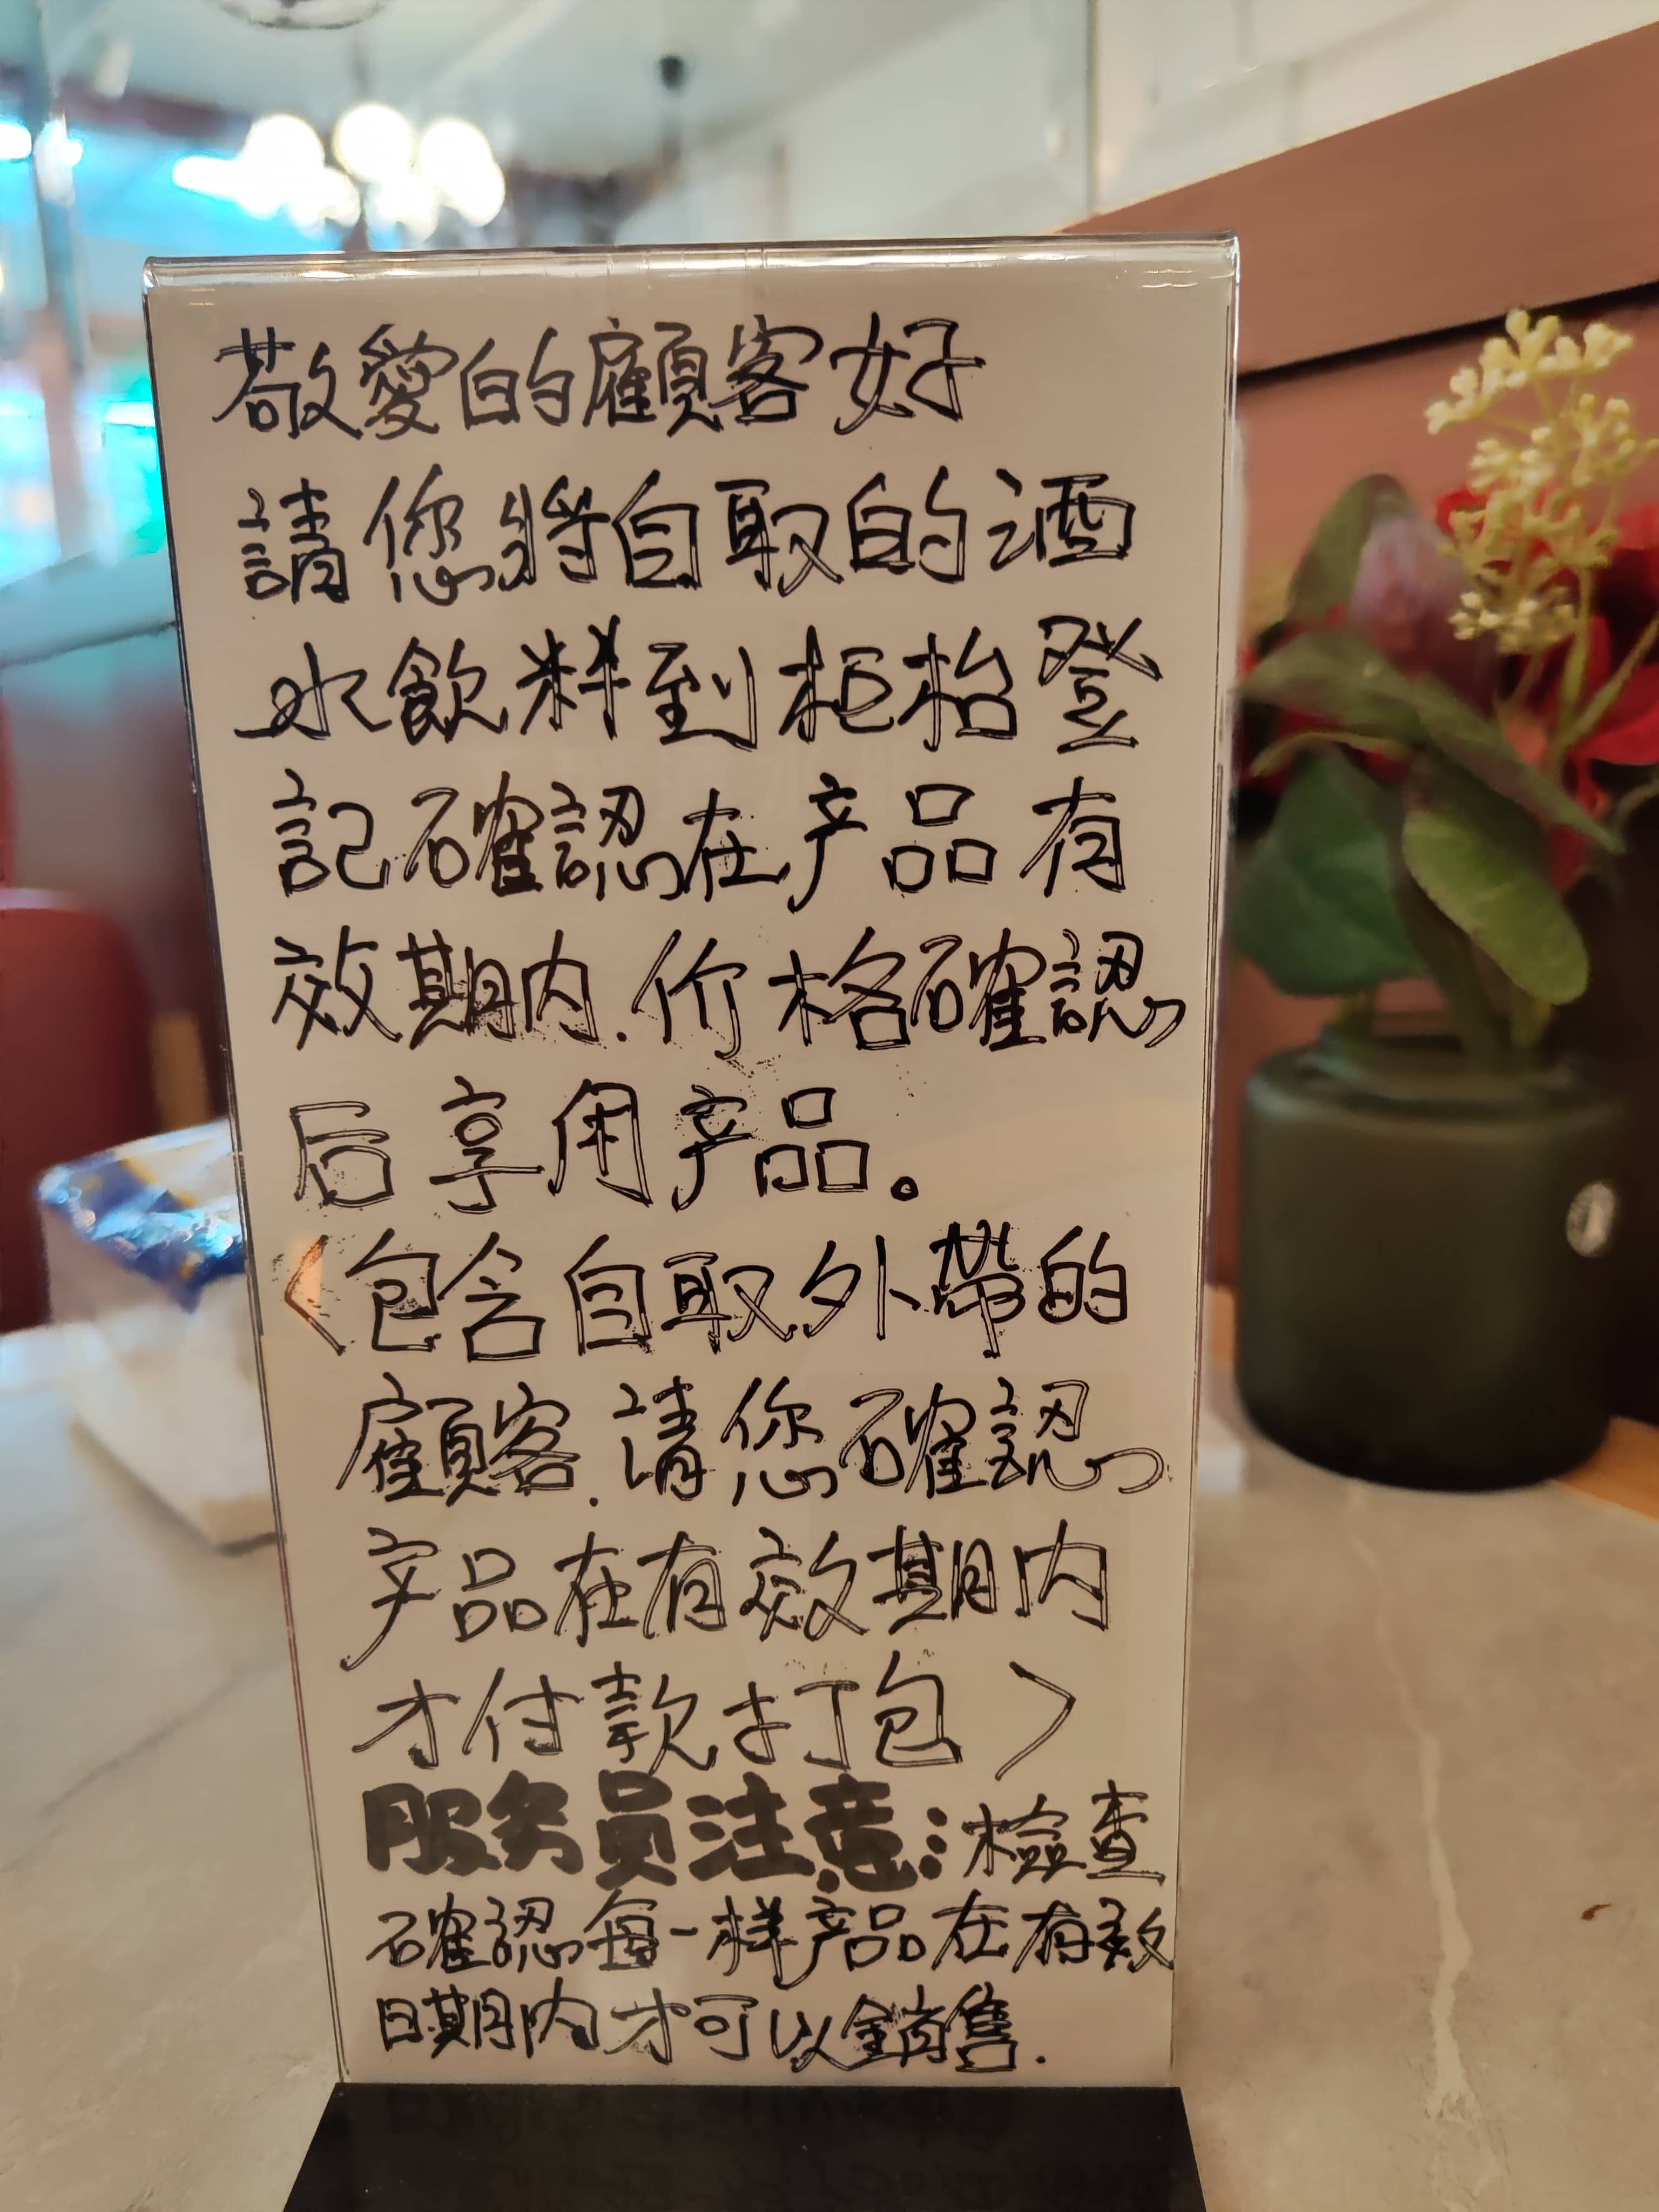 敬愛的顧客好
請您將自取的酒
水飲料到柜枱登
記確認在产品有
效期内.价格確認
后享用产品。
〈包含自取外帶的
顧客.請您確認
产品在有效期内
才付款打包〉
服务员注意:檢查
確認每一样产品在有效
日期内才可以銷售.